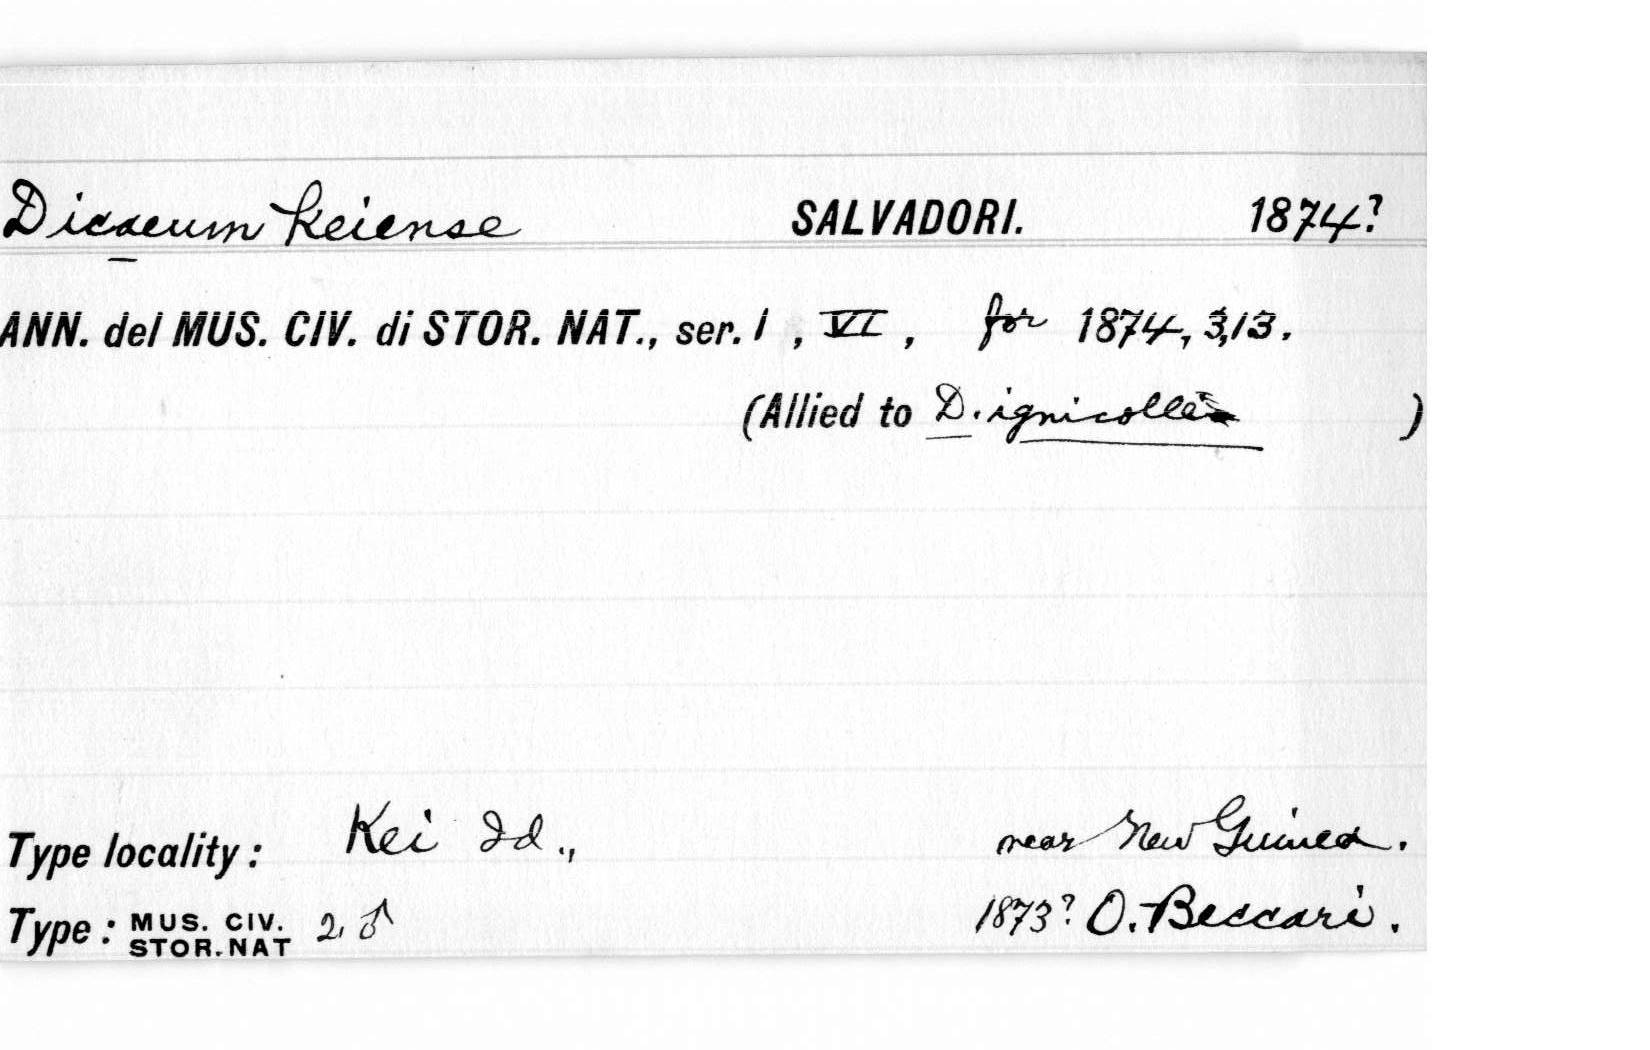 Dicaeum keiense SALVADORI. 1874?
ANN. del MUS. CIV. di STOR. NAT., ser. 1, VI, for 1874, 313.
(Allied to D. ignicolle )
Type locality: Kei Id., near New Guinea.
Type: MUS. CIV. STOR. NAT 2, ♂ 1873? O. Beccari.